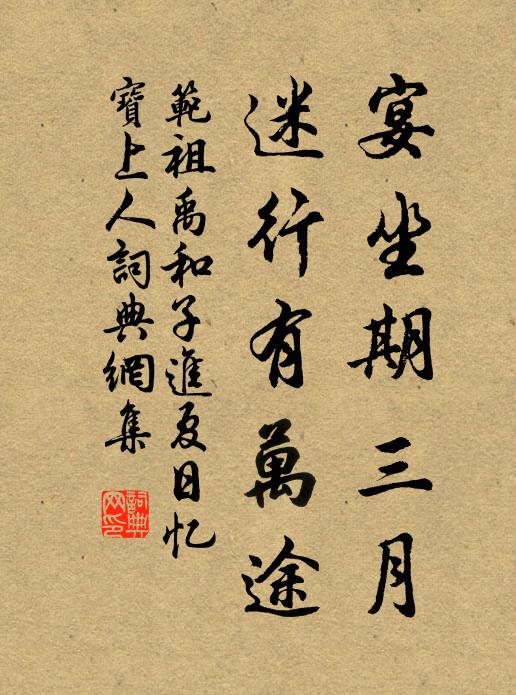 宴坐期三月
迷行有萬途
範祖禹和子進夏日忆
寶上人詞典網集
詞典網印